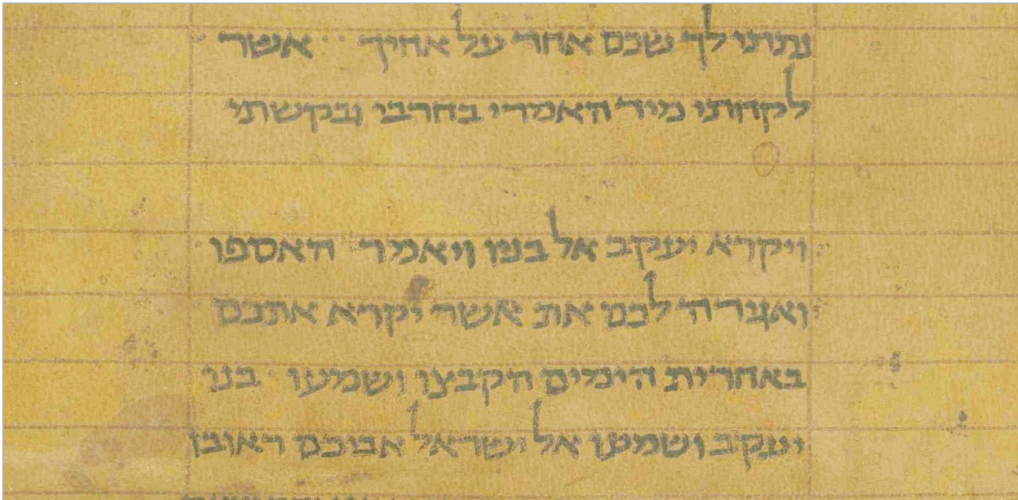 נתתי לך שכם אחד על אחיך אשר
לקחתי מיד האמרי בחרבי ובקשתי
ויקרא יעקב אל בניו ויאמר האספו
ואגידה לכם את אשר יקרא אתכם
באחרית הימים הקבצו ושמעו בני
יעקב ושמעו אל ישראל אביכם ראובן